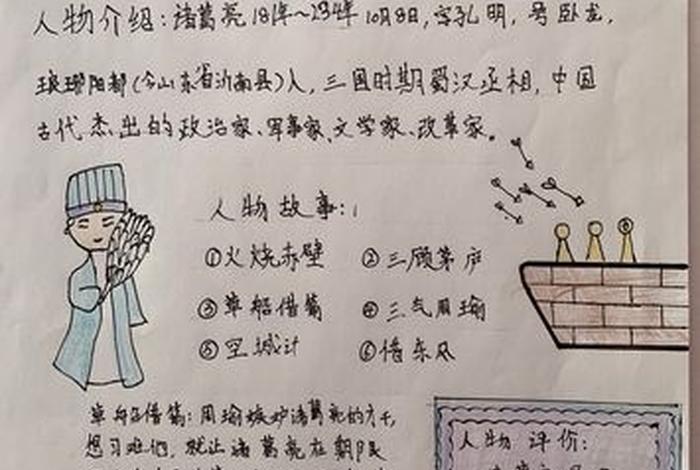 人物介绍:诸葛亮181年~234年10月8日,字孔明,号卧龙,
琅琊阳都(今山东省沂南县)人,三国时期蜀汉丞相,中国
古代杰出的政治家、军事家、文学家、改革家。
人物故事:
①火烧赤壁 ②三顾茅庐
③草船借箭 ④三气周瑜
⑤空城计 ⑥借东风
草船借箭:周瑜嫉妒诸葛亮的才干,
想刁难他们,就让诸葛亮在期限
人物评价: